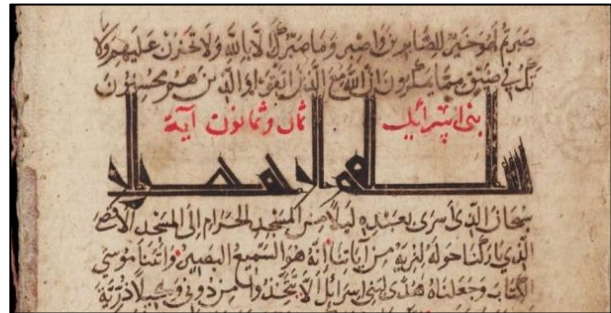 صبرتم لهو خير للصابرين واصبر وما صبرك إلا بالله ولا تحزن عليهم ولا
تك في ضيق مما يمكرون إن الله مع الذين اتقوا والذين هم محسنون
بنى اسرائيل ثمان وثمانون آية
سبحان الذى أسرى بعبده ليلا من المسجد الحرام إلى المسجد الاقصا
الذى باركنا حوله لنريه من آياتنا انه هو السميع البصير وآتينا موسى
الكتاب وجعلناه هدى لبنى اسرائيل ألا تتخذوا من دونى وكيلا ذرية